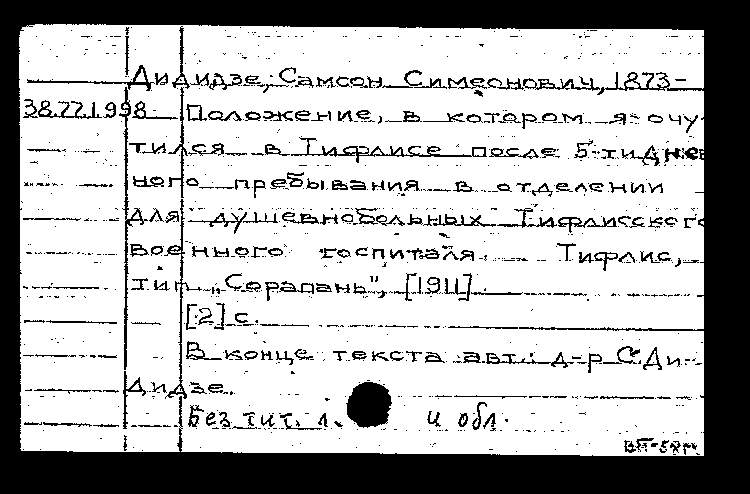 Дидидзе, Самсон Симеонович, 1873-
38.77.1.998 Положение, в котором я очу-
тился в Тифлисе после 5-тиднев
ного пребывания в отделении
для душевнобольных Тифлисского
военного госпиталя. Тифлис,
тип. "Сорапань", [1911].
[2] с.
В конце текста авт.: д-р С. Ди-
дидзе.
Без тит. л. и обл.